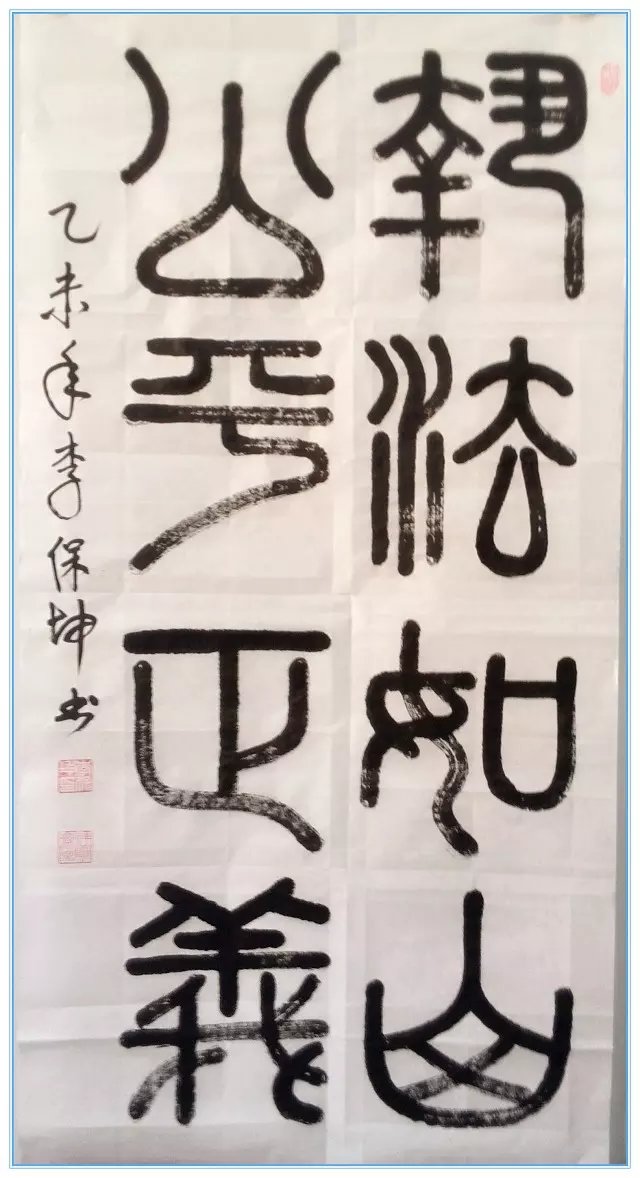 執法如山
公平正義
乙未年李保坤书